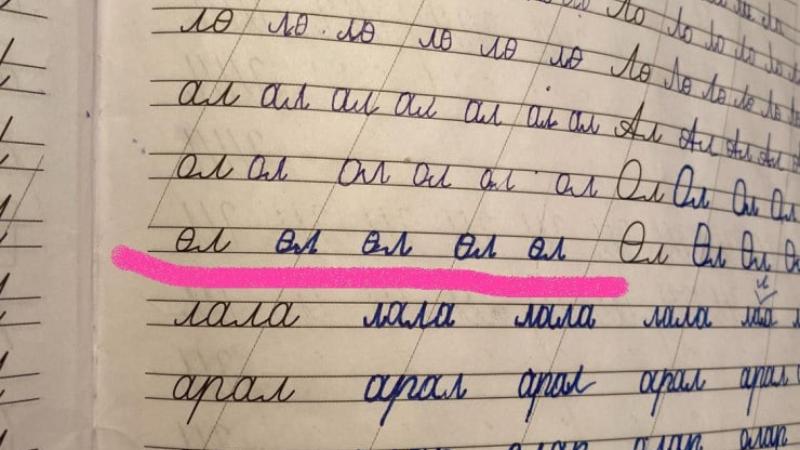 Ло Ло Ло Ло Ло
лө лө лө лө лө лө Лө Лө Лө Лө Лө Лө
ал ал ал ал ал ал ал Ал Ал Ал Ал
ол ол ол ол ол ол Ол Ол Ол Ол
өл өл өл өл өл Өл Өл Өл
лала лала лала лала лаа
арал арал арал арал арал
олар